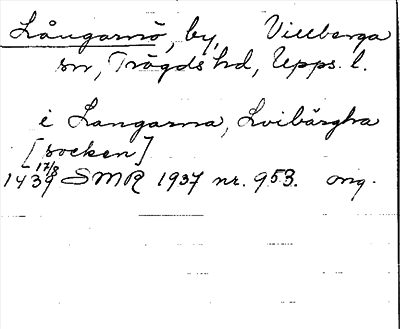 Långarnö, by, Villberga
sn, Trögds hd, Upps. l.
i Langarna, Lvibärgha
[socken]
17/8
1439 SMR 1937 nr. 953. orig.